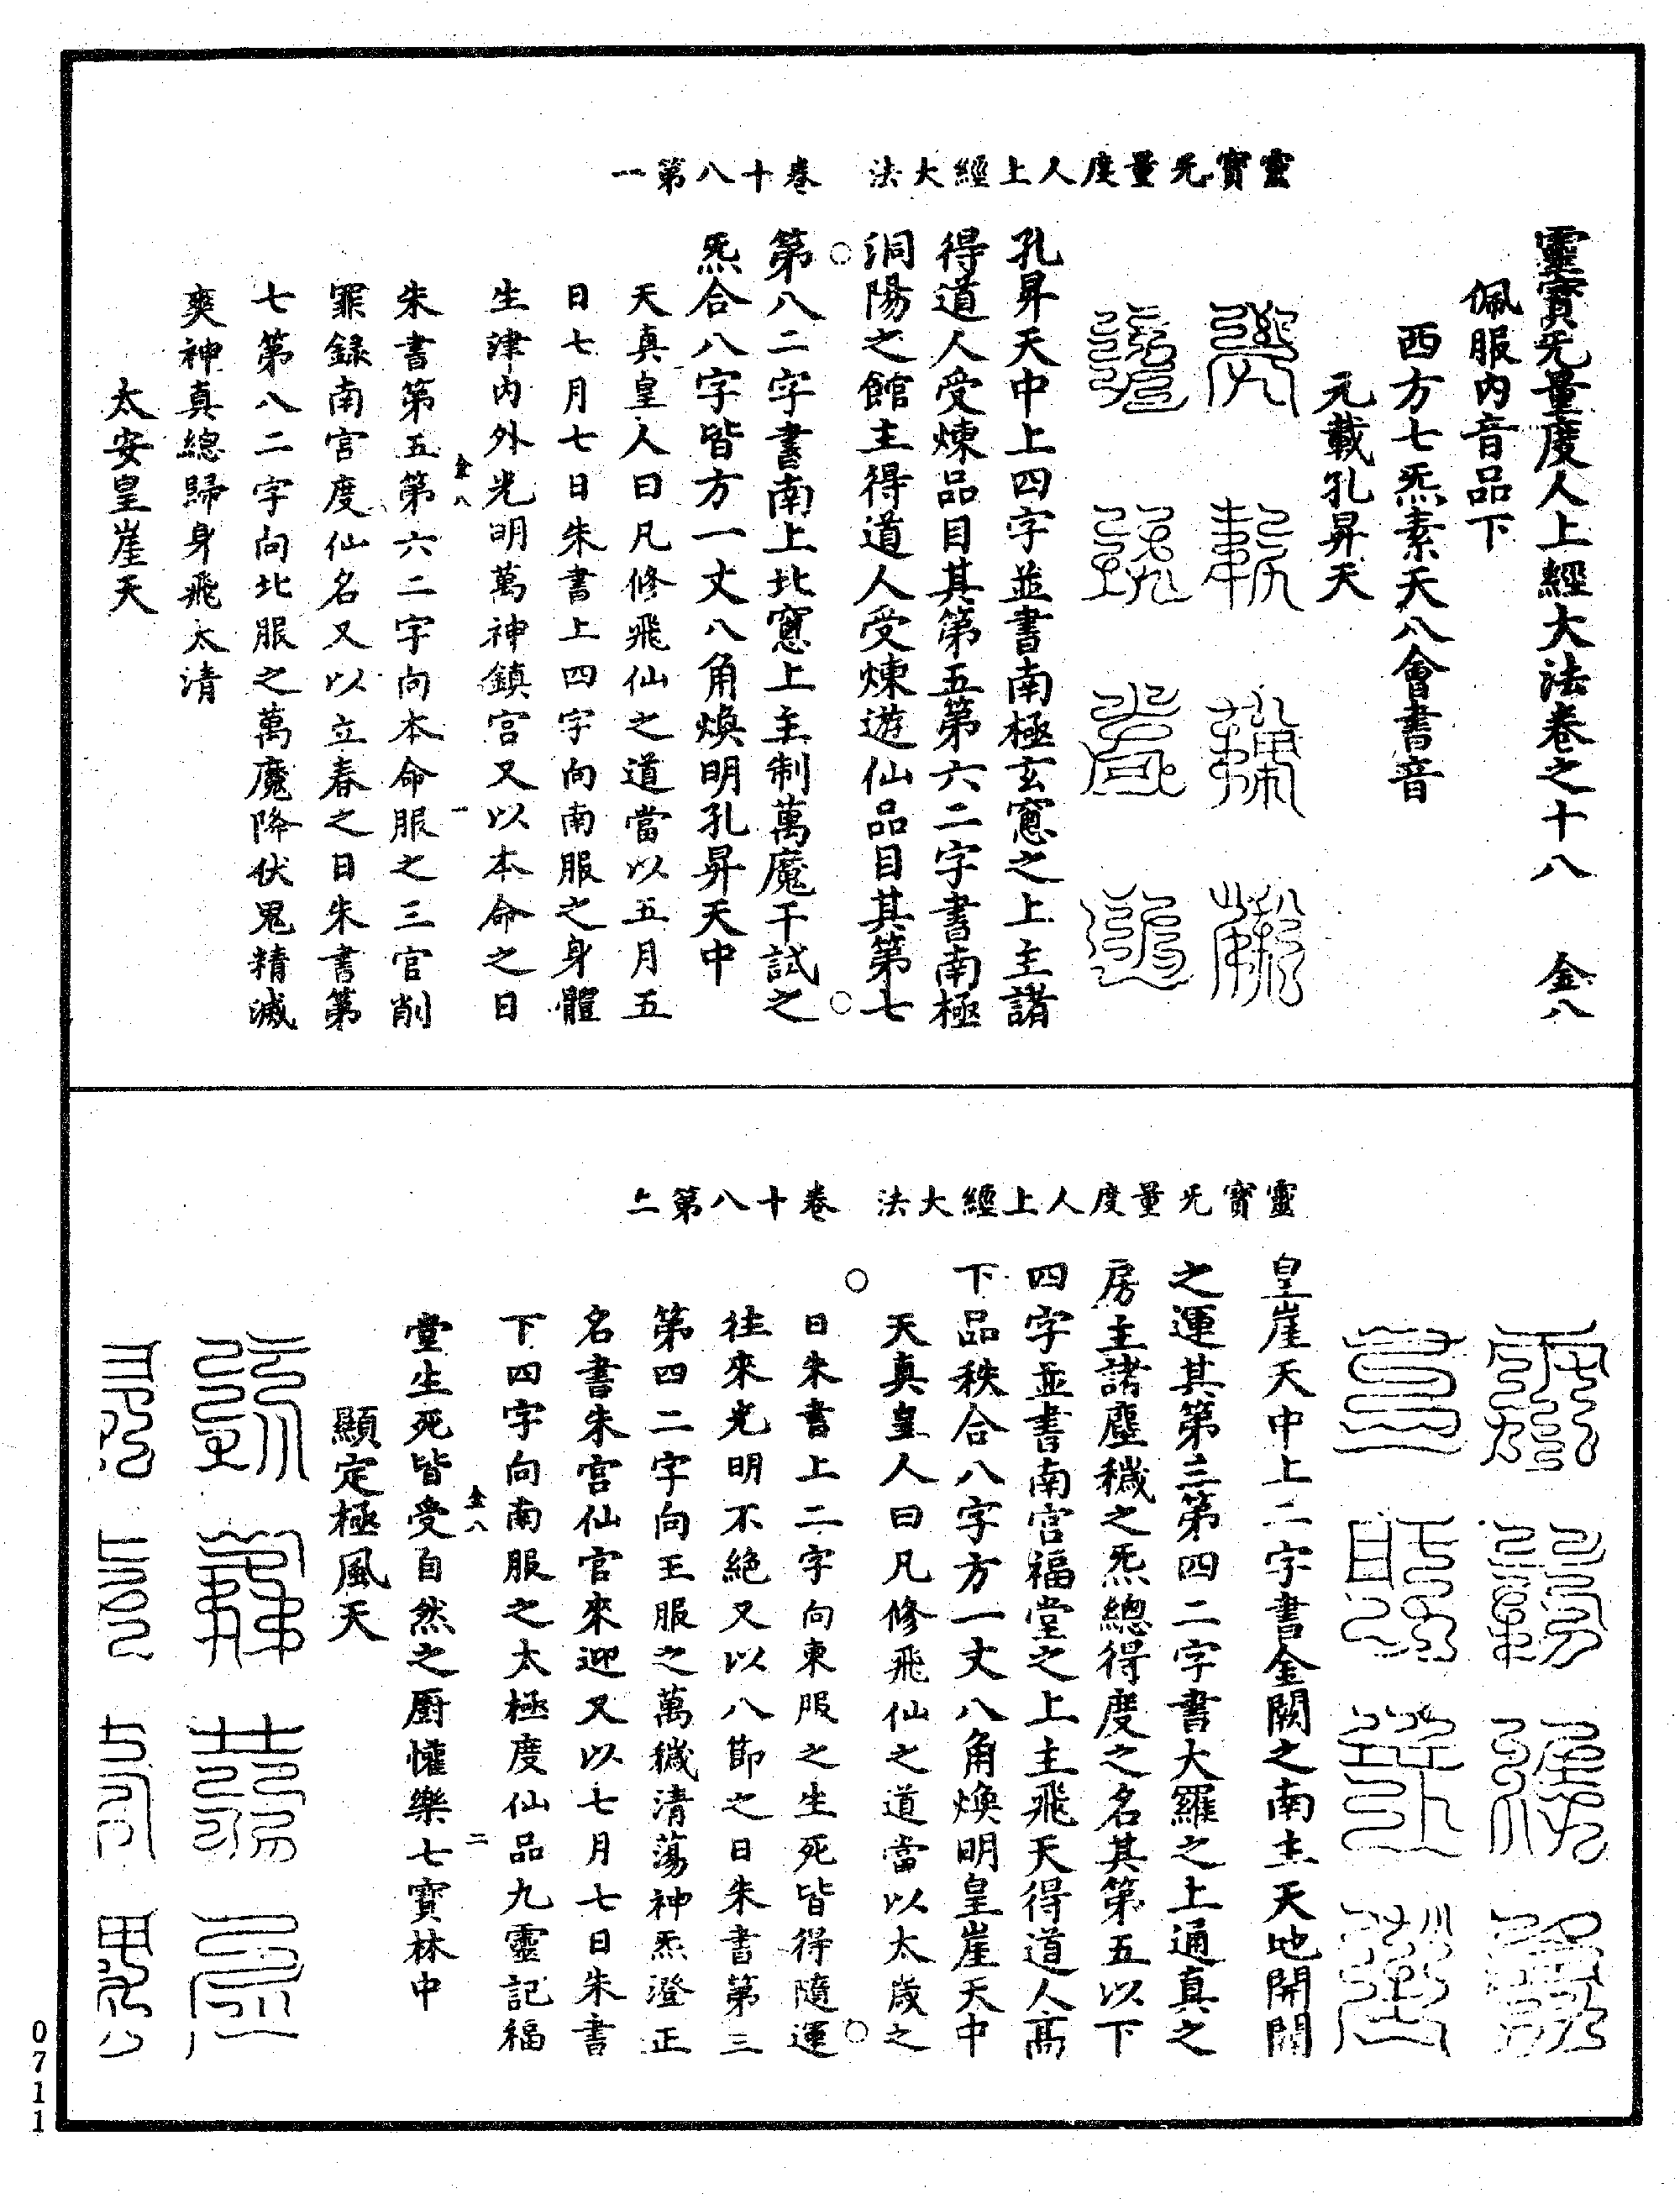 靈寶无量度人上經大法　卷十八第一
靈寶无量度人上經大法卷之十八　金八
佩服内音品下
西方七炁素天八會書音
元載孔昇天
孔昇天中上四字並書南極玄窻之上主諸
得道人受煉品目其第五第六二字書南極
洞陽之館主得道人受煉遊仙品目其第七
第八二字書南上北窻上主制萬魔干試之
炁合八字皆方一丈八角煥明孔昇天中
天真皇人曰凡修飛仙之道當以五月五
日七月七日朱書上四字向南服之身體
生津内外光明萬神鎮宫又以本命之日
金八　一
朱書第五第六二字向本命服之三官削
罪録南宫度仙名又以立春之日朱書第
七第八二字向北服之萬魔降伏鬼精滅
爽神真總歸身飛太清
太安皇崖天
靈寶无量度人上經大法　卷十八第二
皇崖天中上二字書金闕之南主天地開關
之運其第三第四二字書大羅之上通真之
房主諸塵穢之炁總得度之名其第五以下
四字並書南宫福堂之上主飛天得道人高
下品秩合八字方一丈八角煥明皇崖天中
天真皇人曰凡修飛仙之道當以太歲之
日朱書上二字向東服之生死皆得隨運
往來光明不絶又以八節之日朱書第三
第四二字向王服之萬穢清蕩神炁澄正
名書朱宫仙官來迎又以七月七日朱書
下四字向南服之太極度仙品九靈記福
金八　二
堂生死皆受自然之厨懽樂七寶林中
顯定極風天
0711